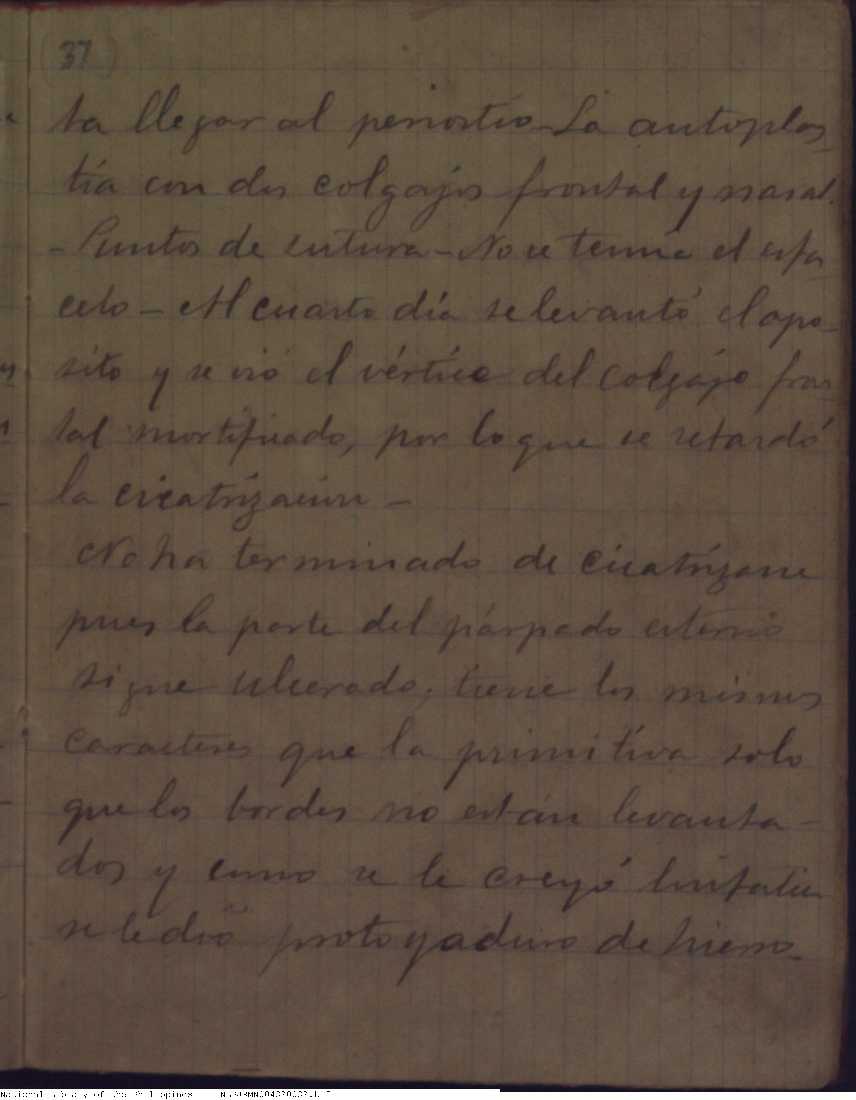 37
ta llegar al periostio - La autoplas
tía con dos colgajos frontal y nasal.
- Puntos de sutura - No se temía el esfa
celo - Al cuarto día se levantó el apo-
sito y se vió el vértice del colgajo fron
tal mortificado, por lo que se retardó
la cicatrización -
No ha terminado de cicatrizarse
pues la parte del párpado externo
sigue ulcerado; tiene los mismos
caracteres que la primitiva solo
que los bordes no están levanta-
dos y como se le creyó linfatico
se le dió protoyoduro de hierro.
National Library of the Philippines